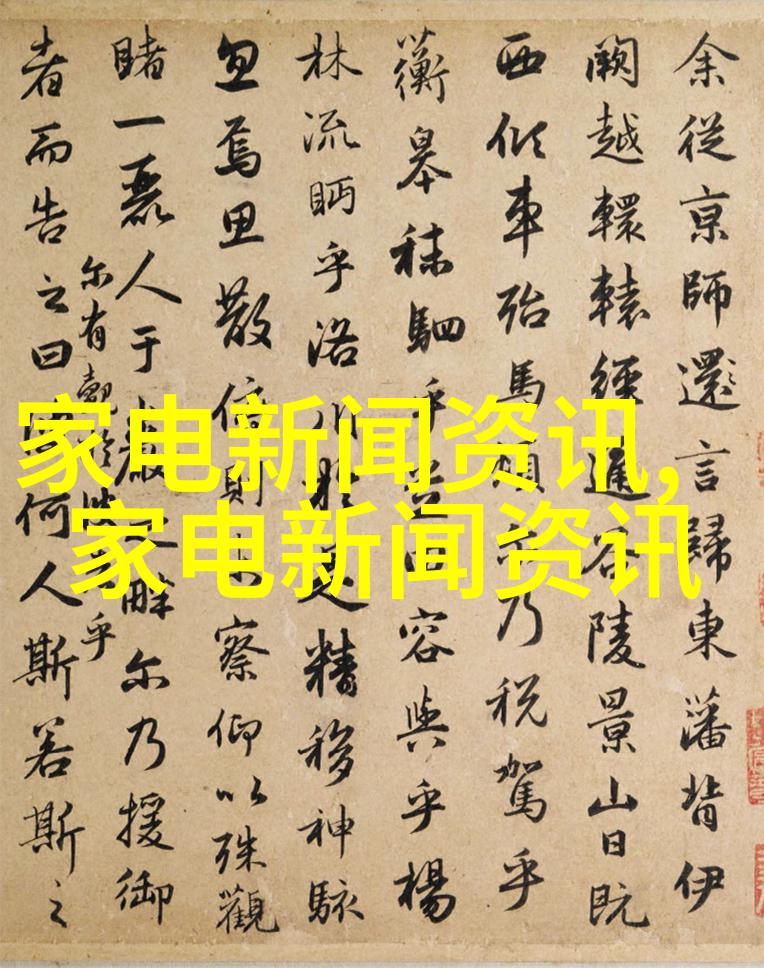 家电新闻资讯,
家电新闻资讯
余從京師還言歸東藩背伊
闕越轘轅經通谷陵景山日既
西傾車殆馬煩尔乃税駕乎
蘅皋秣駟乎芝田容與乎楊
林流眄乎洛川於是精移神駭
忽焉思散俯則未察仰以殊觀
睹一麗人于巖之畔尔乃援御
者而告之曰
尔有覿於彼者乎
彼何人斯若斯之